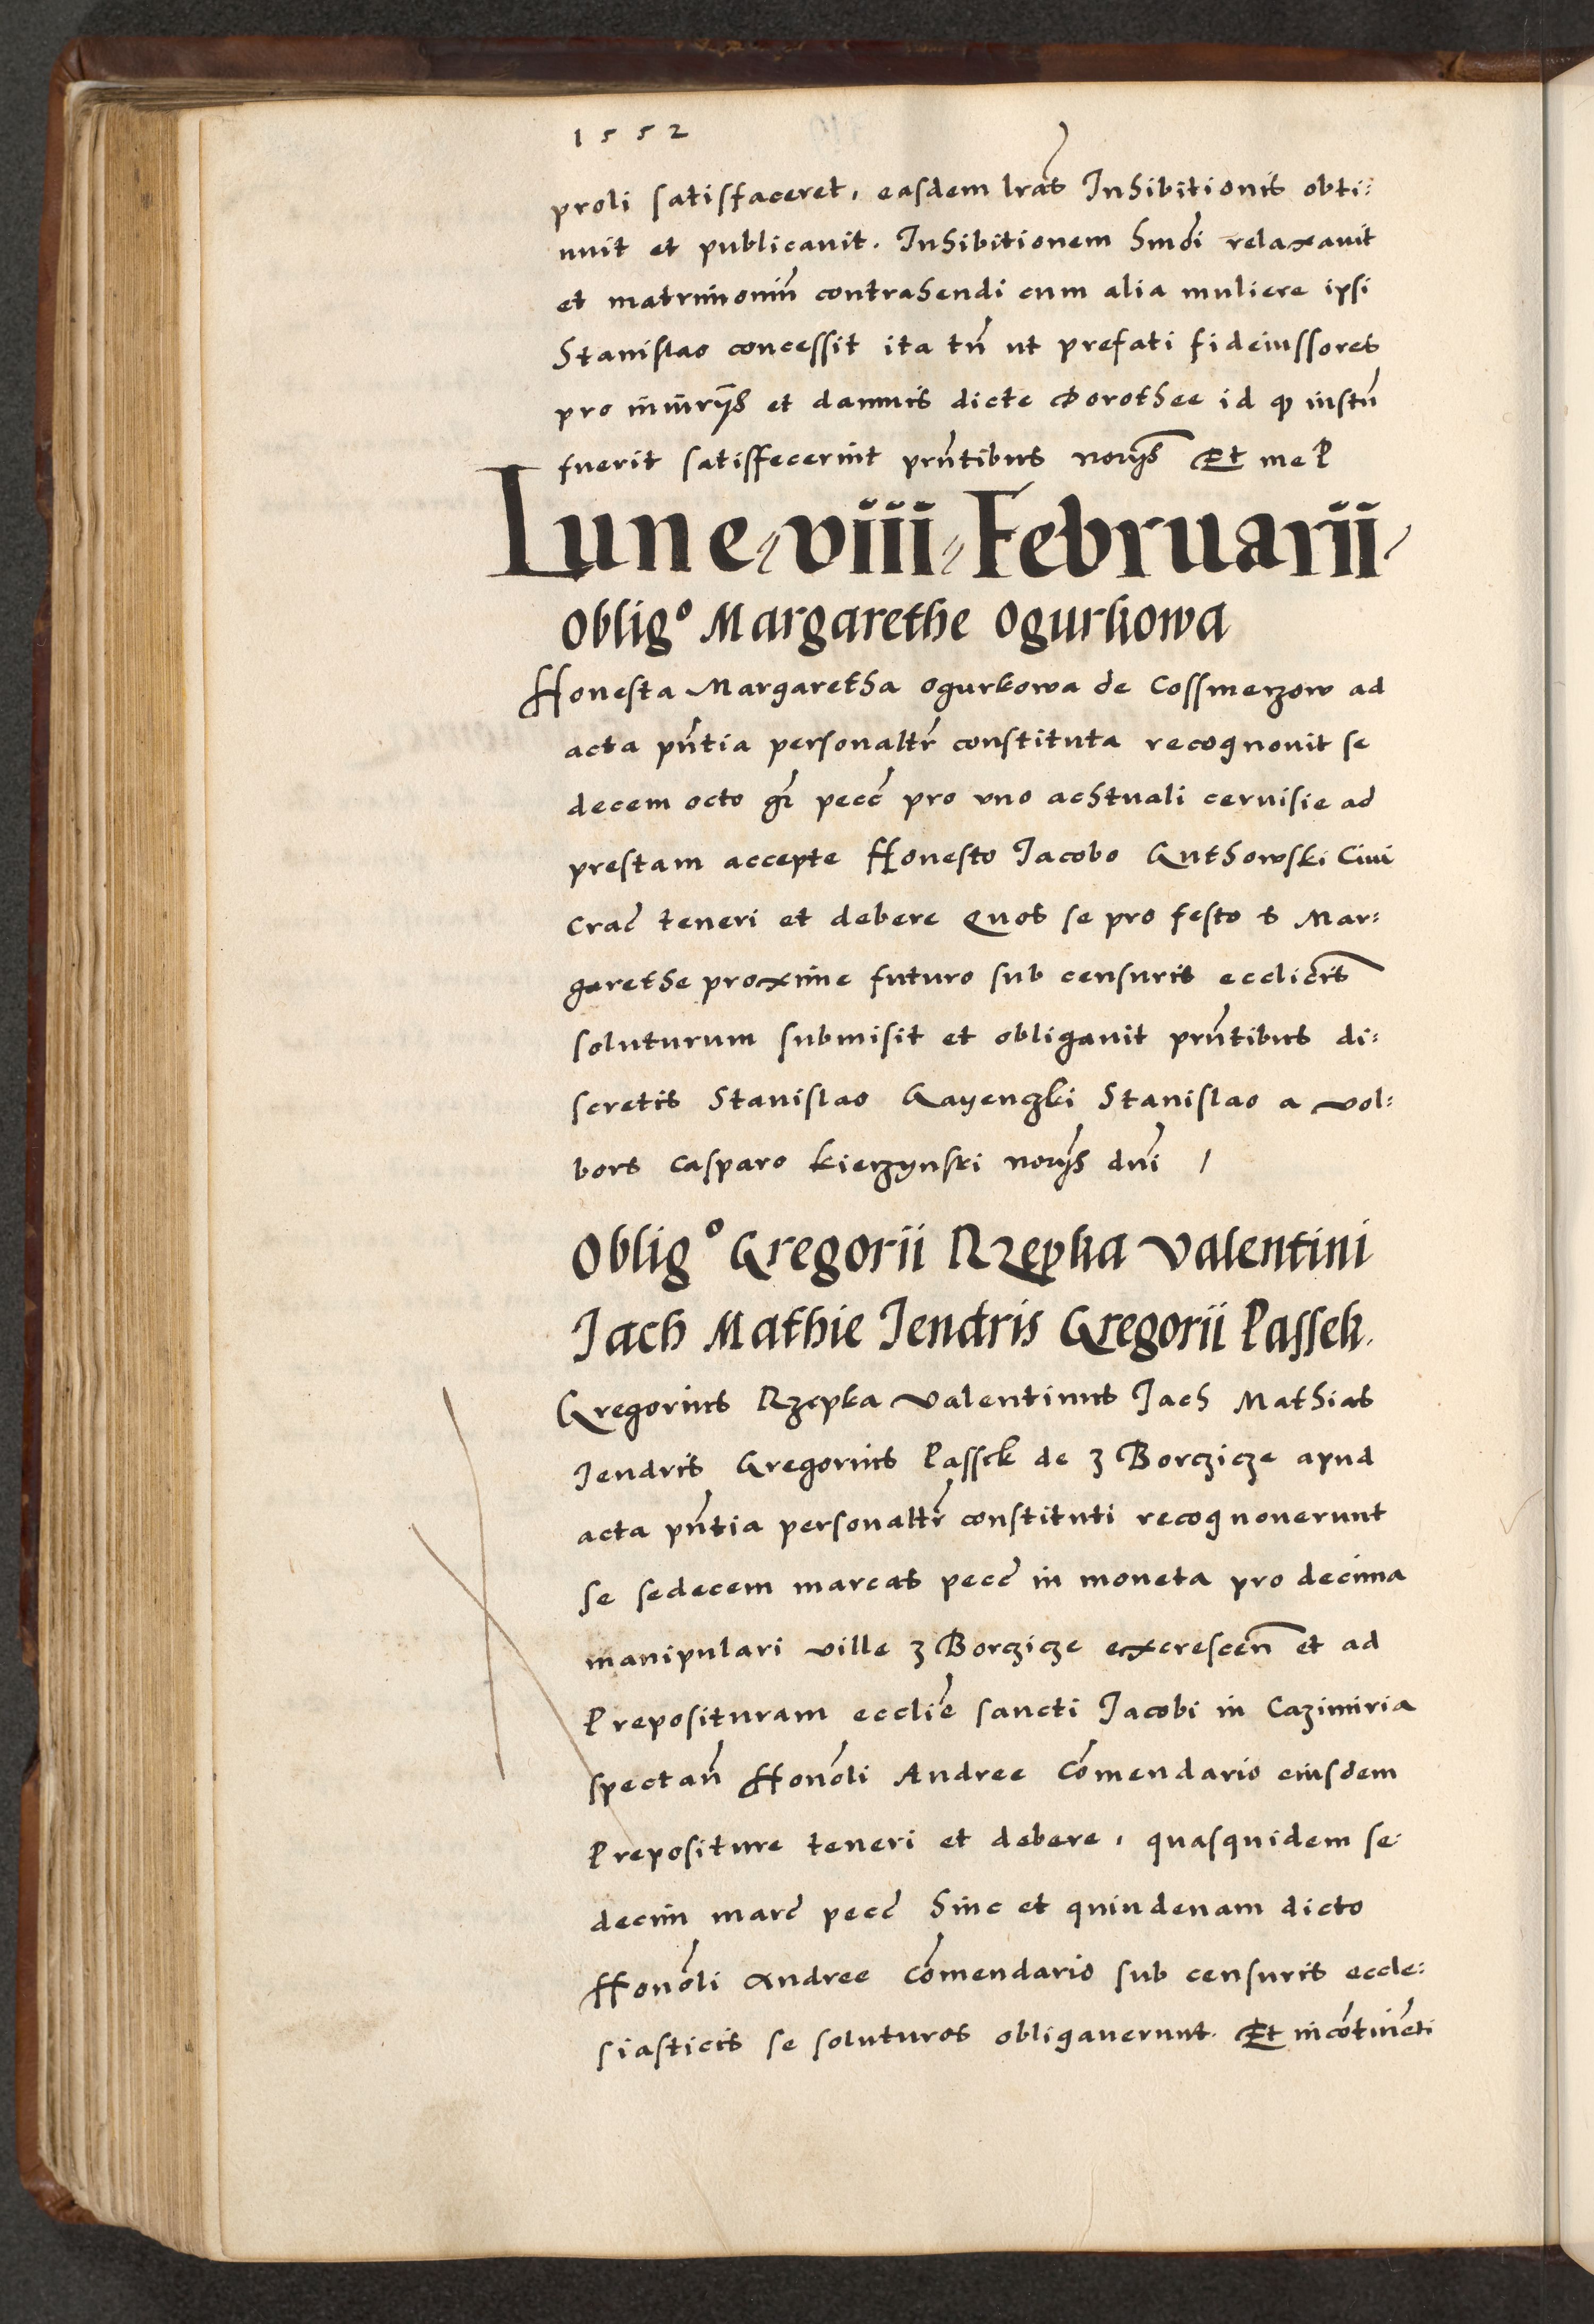 1552
proli satisfaceret, easdem lras Inhibitionis obti:
nuit et publicauit. Inhibitionem hmoi relaxauit
et matrimoniu contrahendi cum alia muliere ipsi
Stanislao concessit ita tn ut prefati fideiussores
pro iniuriis et damnis dicte Dorothee id qd iustu
fuerit satisfecerint pntibus noriis Et me P
Lune viii Februarii
Oblig° Margarethe Ogurkowa
Honesta Margaretha Ogurkowa de Cossmerzow ad
acta pntia personaltr constituta recognouit se
decem octo gr pecc pro vno achtuali ceruisie ad
prestam accepte Honesto Iacobo Guthowski Ciui
Crac teneri et debere Quos se pro festo s Mar:
garethe proxime futuro sub censuris ecclicis
soluturum submisit et obligauit pntibus di:
scretis Stanislao Gayenczki Stanislao a Vol:
bors Casparo Kierzynski noriis dni /
Oblig° Gregorii Rzepka Valentini
Jach Mathie Jendris Gregorii Passek.
Gregorius Rzepka Valentinus Jach Mathias
Jendris Gregorius Passek de Z Borczicze apud
acta pntia personaltr constituti recognouerunt
se sedecem marcas pecc in moneta pro decima
manipulari ville Z Borczicze excrescen et ad
Preposituram ecclie sancti Jacobi in Cazimiria
spectan Honoli Andree Comendario eiusdem
Prepositure teneri et debere, quasquidem se
decim marc pecc hinc et quindenam dicto
Honoli Andree Comendario sub censuris eccle:
siasticis se soluturos obligauerunt. Et incotineti